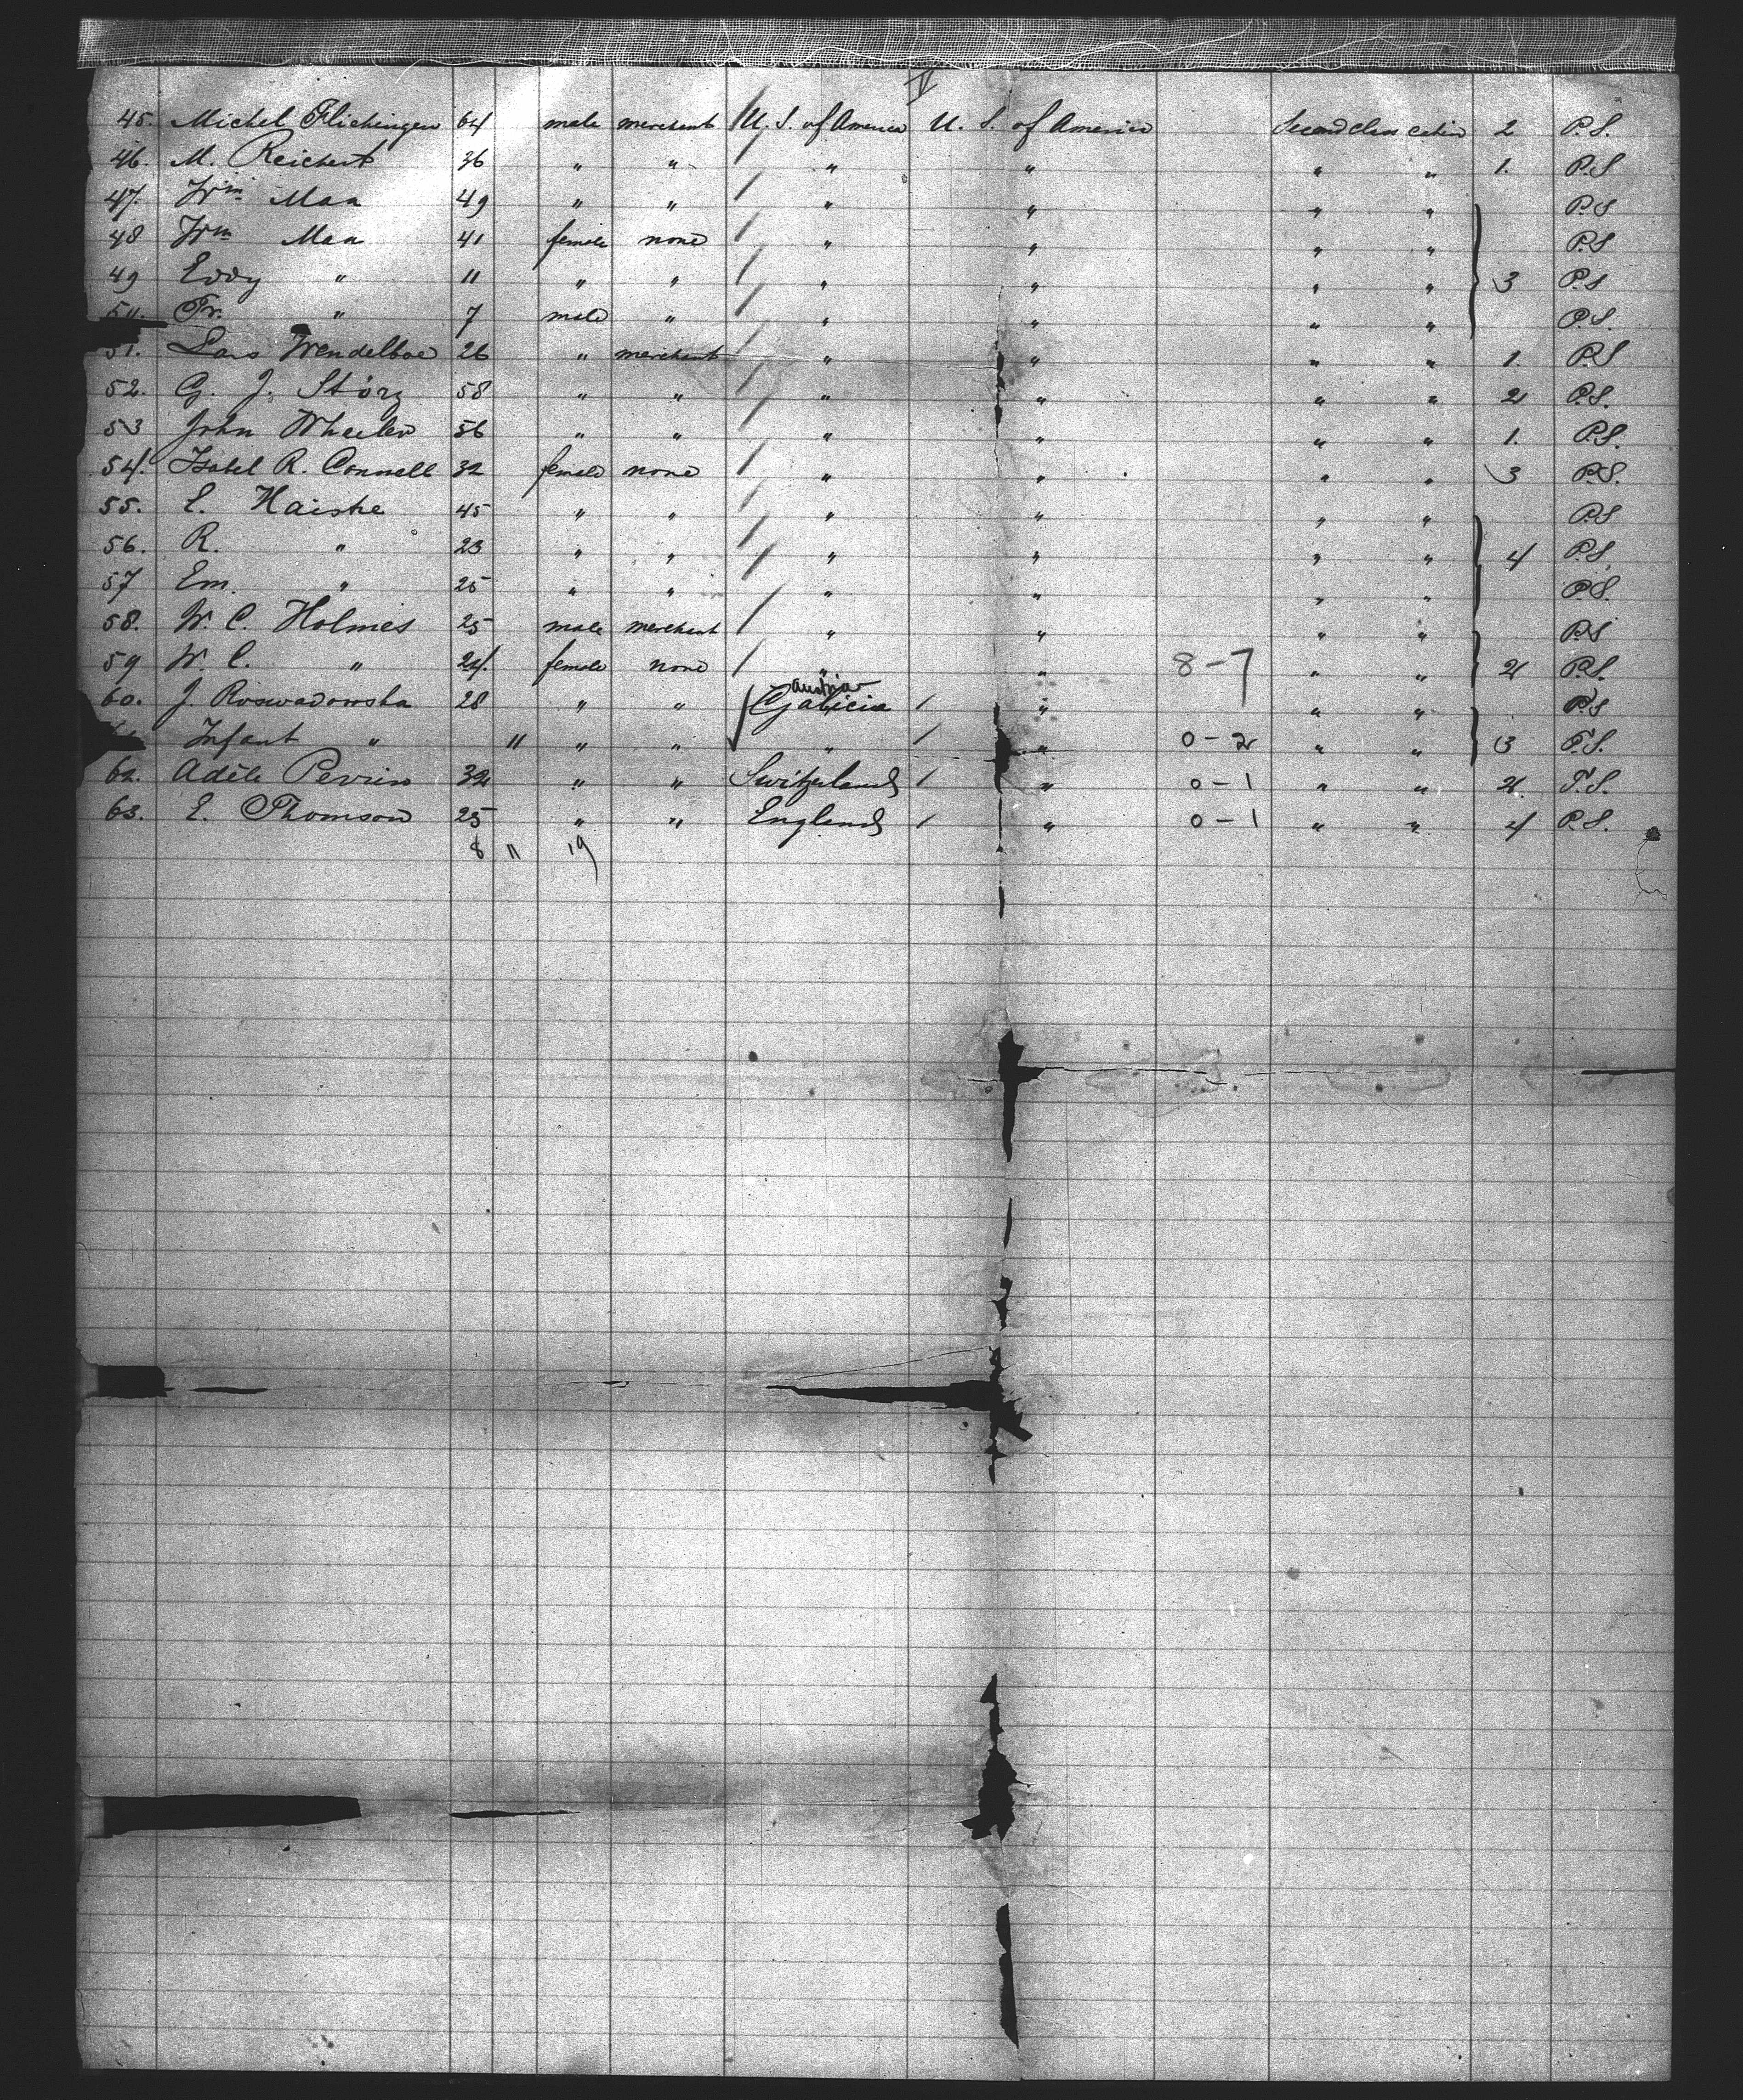 IV
45. Michel Flichinger 64 male merchant U. S. of America U. S. of America Second class cabin 2 P.S.
46. M. Reichert 36 " " " " " " 1. P.S
47. Wm. Maa 49 " " " " " " P.S
48 Wm Maa 41 female none " " " " P.S
49 Eddy " 11 " " " " " " 3 P.S
50. Fr. " 7 male " " " " " P.S.
51. Lars Wendelboe 26 " merchant " " " " 1. P.S
52. G. J. Störz 58 " " " " " " 2 P.S.
53 John Wheeler 56 " " " " " " 1. P.S.
54. Isabel R. Connell 32 female none " " " " 3 P.S.
55. E. Haishe 45 " " " " " " P.S
56. R. " 23 " " " " " " 4 P.S.
57 Em. " 25 " " " " " " P.S.
58. W. C. Holmes 25 male merchant " " " " P.S
59 W. C. " 24. female none " " 8-7 " " 2 P.S.
Austria
60. J. Roswadowska 28 " " Galicia / " " " P.S
Infant " " " " " / " 0-2 " " 3 P.S.
62. Adèle Perrin 32 " " Switzerland / " 0-1 " " 2. P.S.
63. E. Thomson 25 " " England / " 0-1 " " 4 P.S.
8 " 19